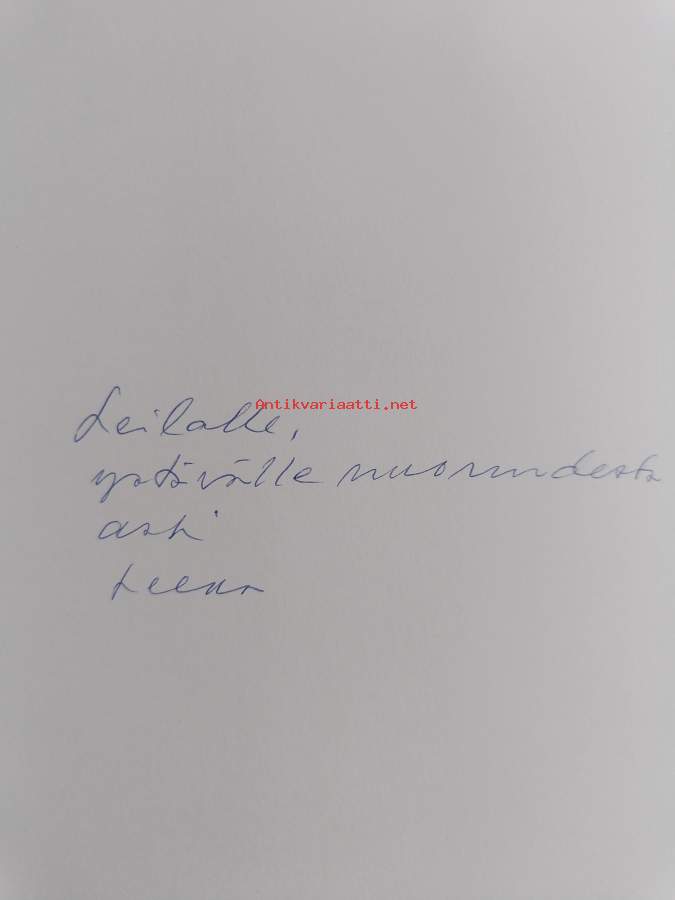 Antikvariaatti.net
Leilalle,
ystävälle nuoruudesta
asti
Leena